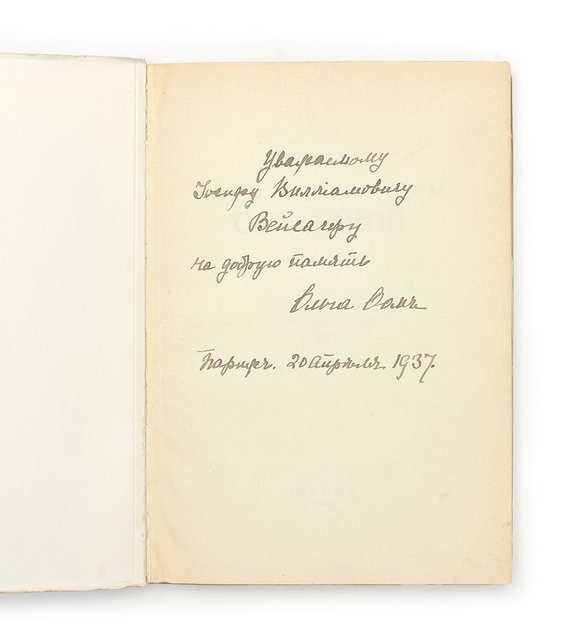 Уважаемому
Іосифу Вилліамовичу
Вейсагеру
на добрую память
Ольга
Парижъ. 20 Апрѣля 1937.